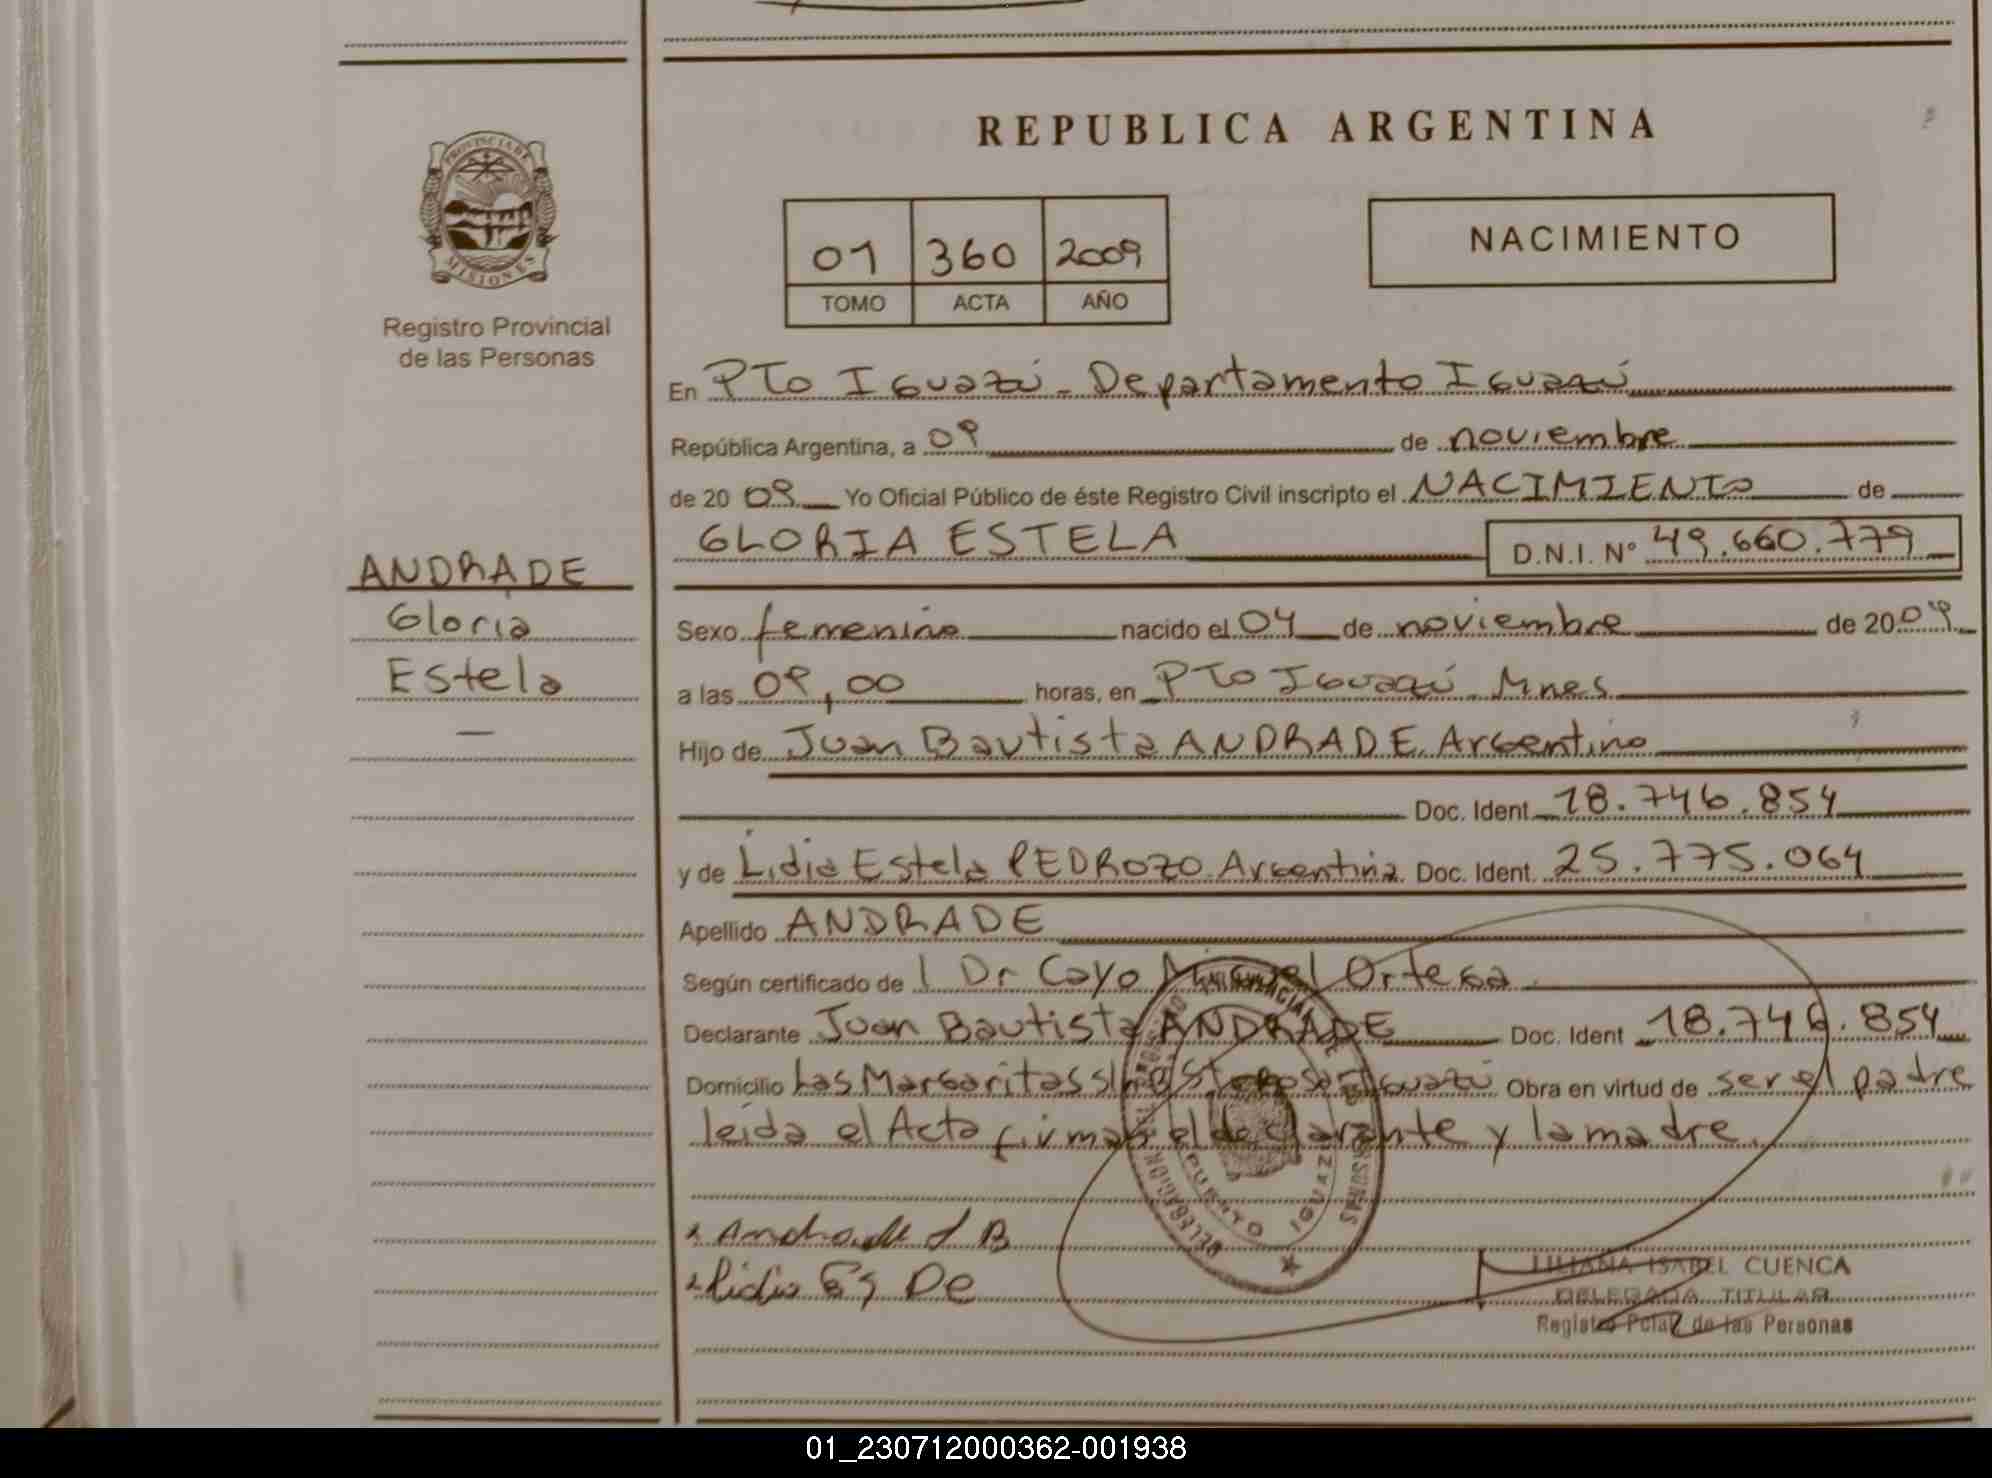 REPUBLICA ARGENTINA
PROVINCIA DE
MISIONES
Registro Provincial
de las Personas
01 360 2009
TOMO ACTA AÑO
NACIMIENTO
En PTo Iguazú - Departamento Iguazú
República Argentina, a 09 de noviembre
de 20 09 Yo Oficial Público de éste Registro Civil inscripto el NACIMIENTO de
GLORIA ESTELA D.N.I. N° 49.660.779
ANDRADE
Gloria
Estela
—
Sexo femenino nacido el 04 de noviembre de 2009
a las 09,00 horas, en PTo Iguazú Mnes
Hijo de Juan Bautista ANDRADE Argentino
Doc. Ident. 18.746.854
y de Lidia Estela PEDROZO Argentina Doc. Ident. 25.775.064
Apellido ANDRADE
Según certificado de Dr Cayo Miguel Ortega
Declarante Juan Bautista ANDRADE Doc. Ident 18.746.854
Domicilio Las Margaritas s/n B° Sta Rosa Iguazú Obra en virtud de ser el padre
leida el Acta firman el declarante y la madre
DELEGACION PUERTO IGUAZU
PERSONAS
Andrade J B
Lidia Es De
LILIANA ISABEL CUENCA
DELEGADA TITULAR
Registro Pcial de las Personas
01_230712000362-001938